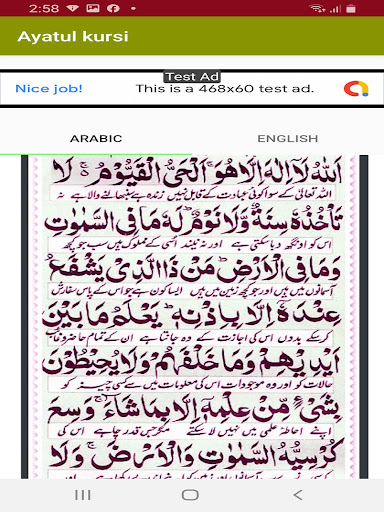 2:58
Ayatul kursi
Test Ad
Nice job!
This is a 468x60 test ad.
ARABIC ENGLISH
اَللّٰهُ لَاۤ اِلٰهَ اِلَّا هُوَ ۚ اَلْحَیُّ الْقَیُّوْمُ ۚ لَا
اللہ تعالیٰ کے سوا کوئی عبادت کے قابل نہیں زندہ ہے سنبھالنے والا ہے نہ
تَاْخُذُهٗ سِنَةٌ وَّلَا نَوْمٌ ؕ لَهٗ مَا فِی السَّمٰوٰتِ
اس کو اونگھ دبا سکتی ہے اور نہ نیند اسی کے مملوک ہیں سب جو کچھ
وَمَا فِی الْاَرْضِ ؕ مَنْ ذَا الَّذِیْ یَشْفَعُ
آسمانوں میں ہیں اور جو کچھ زمین میں ہیں ایسا کون ہے جو اس کے پاس سفارش
عِنْدَهٗۤ اِلَّا بِاِذْنِهٖ ؕ یَعْلَمُ مَا بَیْنَ
کر سکے بدوں اس کی اجازت کے وہ جانتا ہے ان کے تمام حاضر و غائب
اَیْدِیْهِمْ وَمَا خَلْفَهُمْ ۚ وَلَا یُحِیْطُوْنَ
حالات کو اور وہ موجودات اس کی معلومات میں سے کسی چیز کو
بِشَیْءٍ مِّنْ عِلْمِهٖۤ اِلَّا بِمَا شَآءَ ۚ وَسِعَ
اپنے احاطۂ علمی میں نہیں لا سکتے مگر جس قدر چاہے اس کی
كُرْسِیُّهُ السَّمٰوٰتِ وَالْاَرْضَ ۚ وَلَا